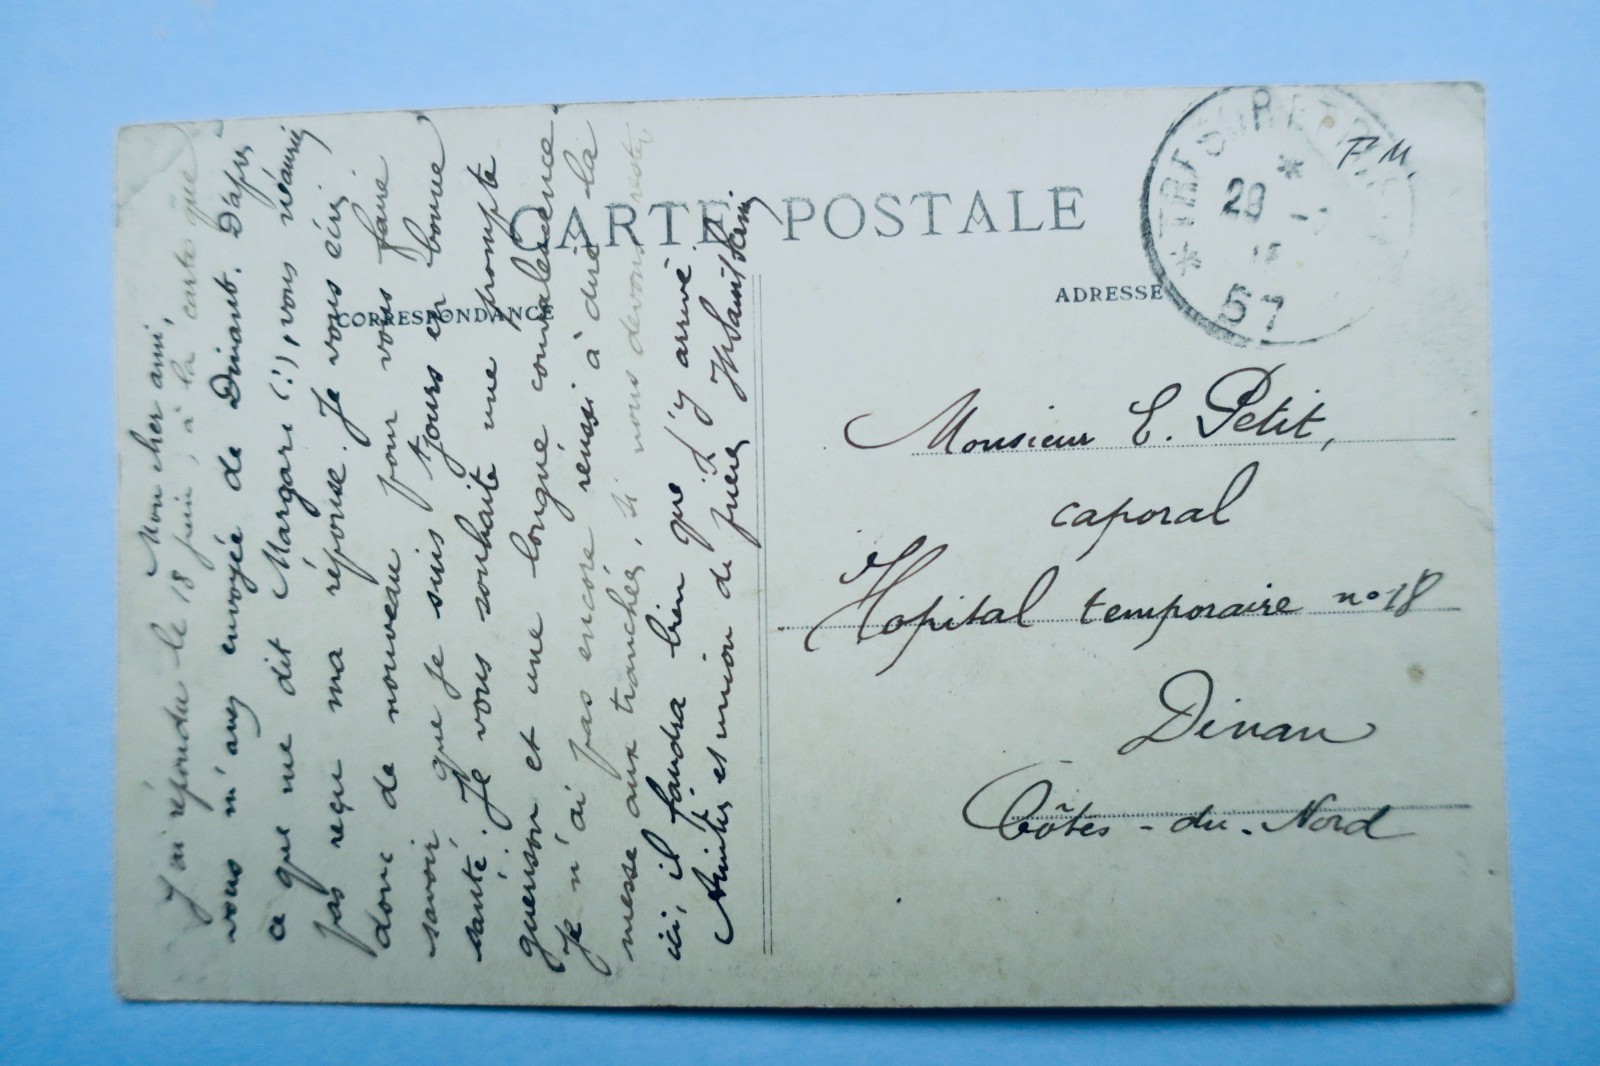 CARTE POSTALE
CORRESPONDANCE
ADRESSE
TRESOR ET POSTES
29
57
F. M.
Mon cher ami,
J'ai répondu le 18 juin, à la carte que
vous m'avez envoyée de Dinant. D'après
ce que me dit Margari (?), vous n'auriez
pas reçu ma réponse. Je vous écris
donc de nouveau pour vous faire
savoir que je suis tjours en bonne
santé. Je vous souhaite une prompte
guérison et une longue convalescence.
Je n'ai pas encore réussi à dire la
messe aux tranchées, si nous devons rester
ici, il faudra bien que j'y arrive.
Amitiés et union de prières
Monsieur E. Petit,
caporal
Hopital temporaire no 18
Dinan
Côtes-du-Nord